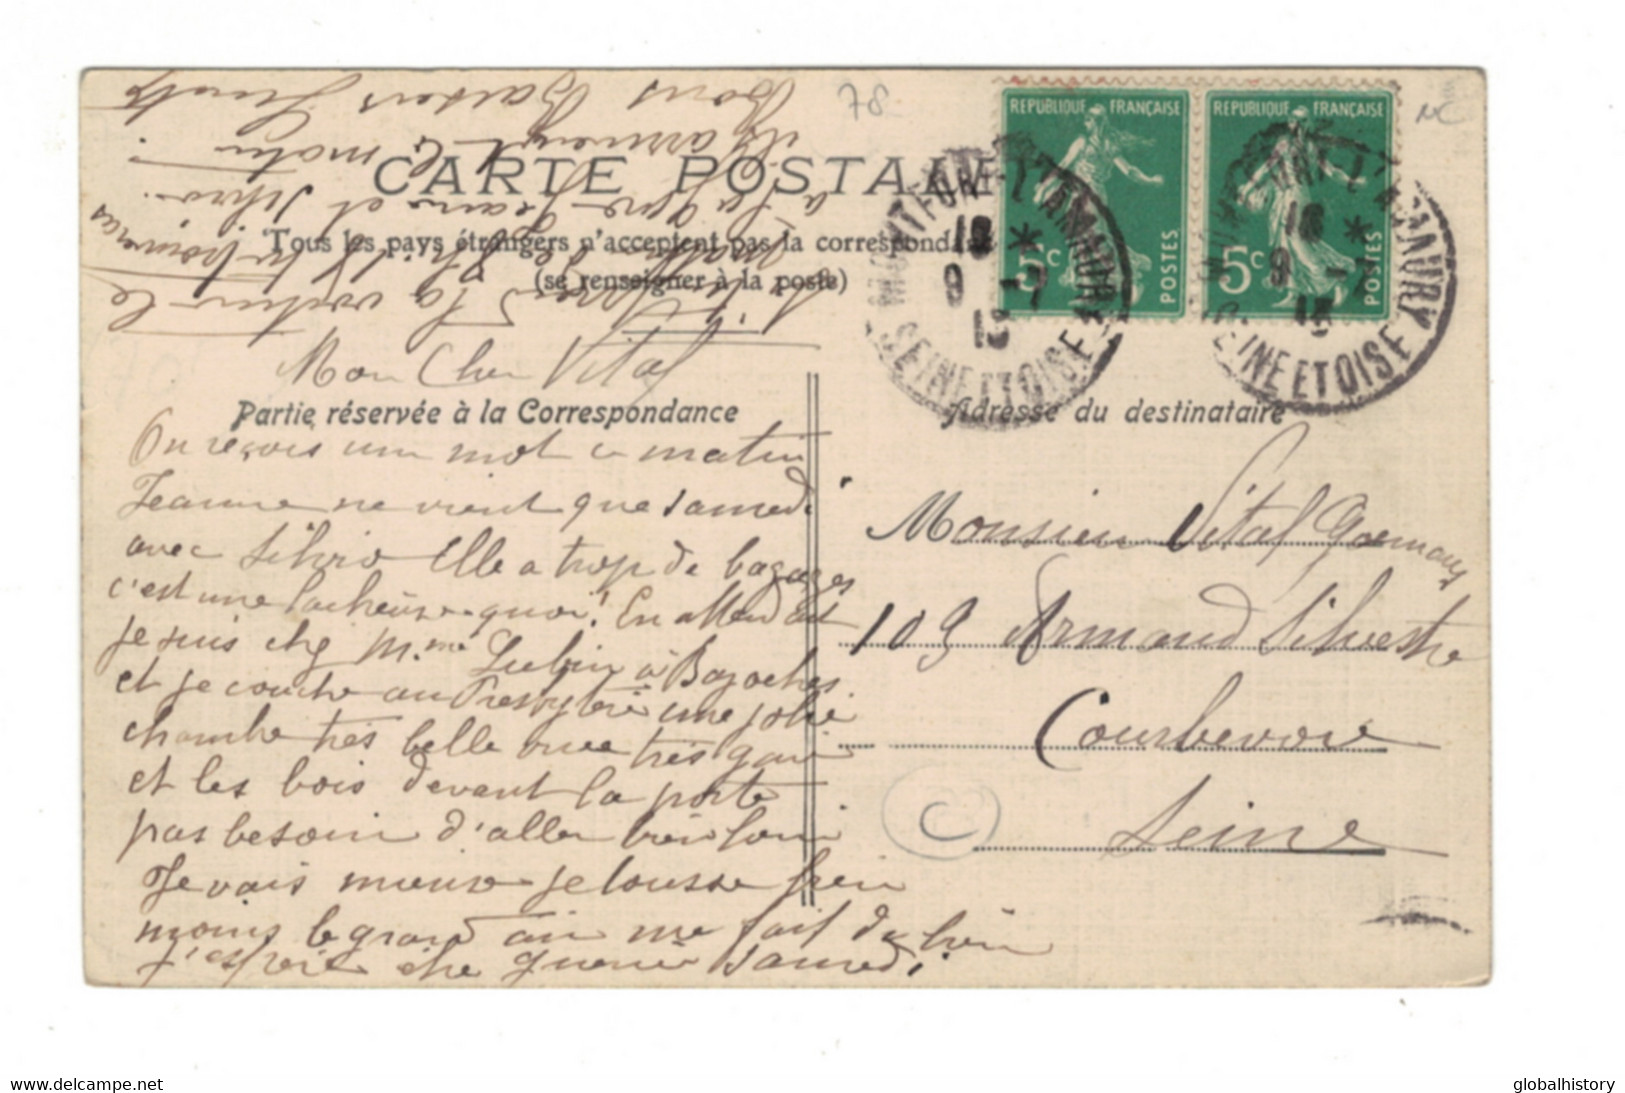 78
NC
CARTE POSTALE
Tous les pays étrangers n'acceptent pas la correspondance
(se renseigner à la poste)
REPUBLIQUE FRANÇAISE
5c POSTES
REPUBLIQUE FRANÇAISE
5c POSTES
MONTFORT-L'AMAURY
18 *
9 -7
13
SEINE ET OISE
MONTFORT-L'AMAURY
18 *
9 -7
13
SEINE ET OISE
Mon Cher Vital
Partie réservée à la Correspondance
On reçois un mot ce matin
Jeanne ne vient que samedi
avec Silvio Elle a trop de bagages
c'est une quoi! En attendant
je suis chez Mme Lubin à Bazoches
et je couche au Presbytère une jolie
chambre très belle vue très gaie
et les bois devant la porte
pas besoin d'aller bien loin
Je vais mieux je tousse bien
moins le grand air me fait du bien
J'espère être guérie samedi
matin
à la gare Jeanne et Silvio
Bons Baisers
Adresse du destinataire
Monsieur Vital
109 Armand Silvestre
Courbevoie
Seine
C
www.delcampe.net
globalhistory